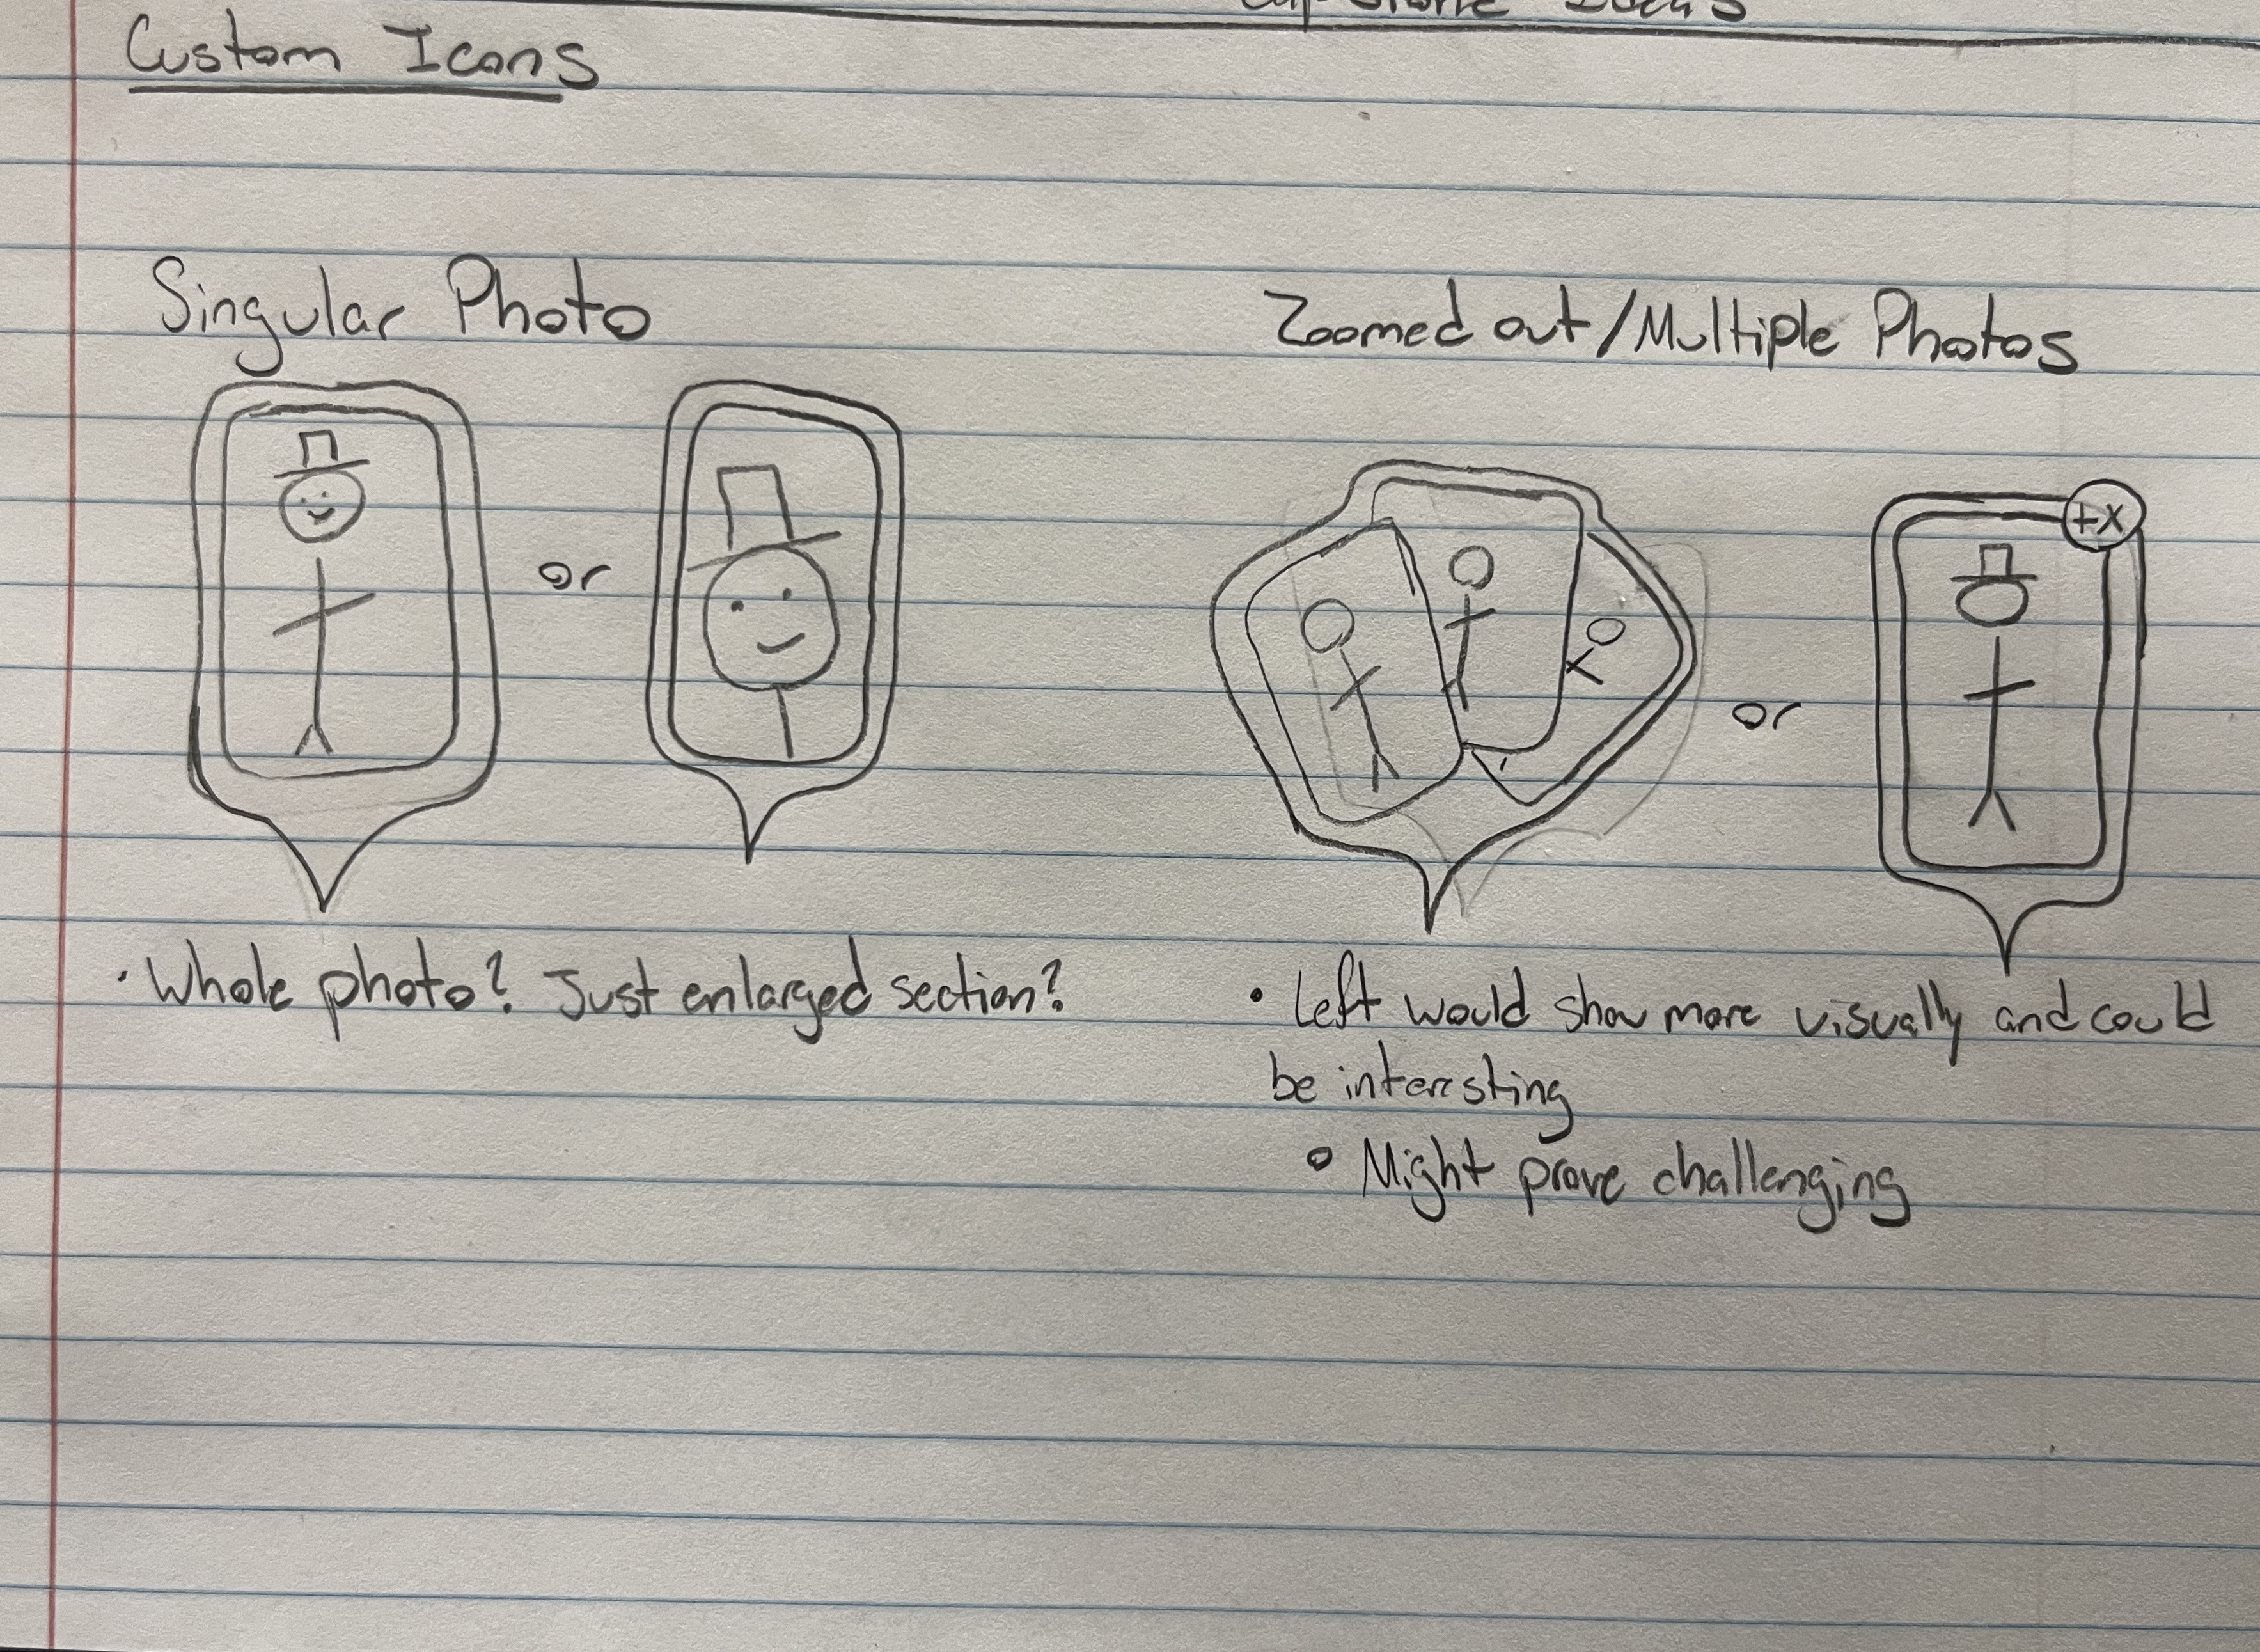 Custom Icons
Singular Photo
or
· Whole photo? Just enlarged section?
Zoomed out/Multiple Photos
+x
or
• Left would show more visually and could
be interesting
• Might prove challenging